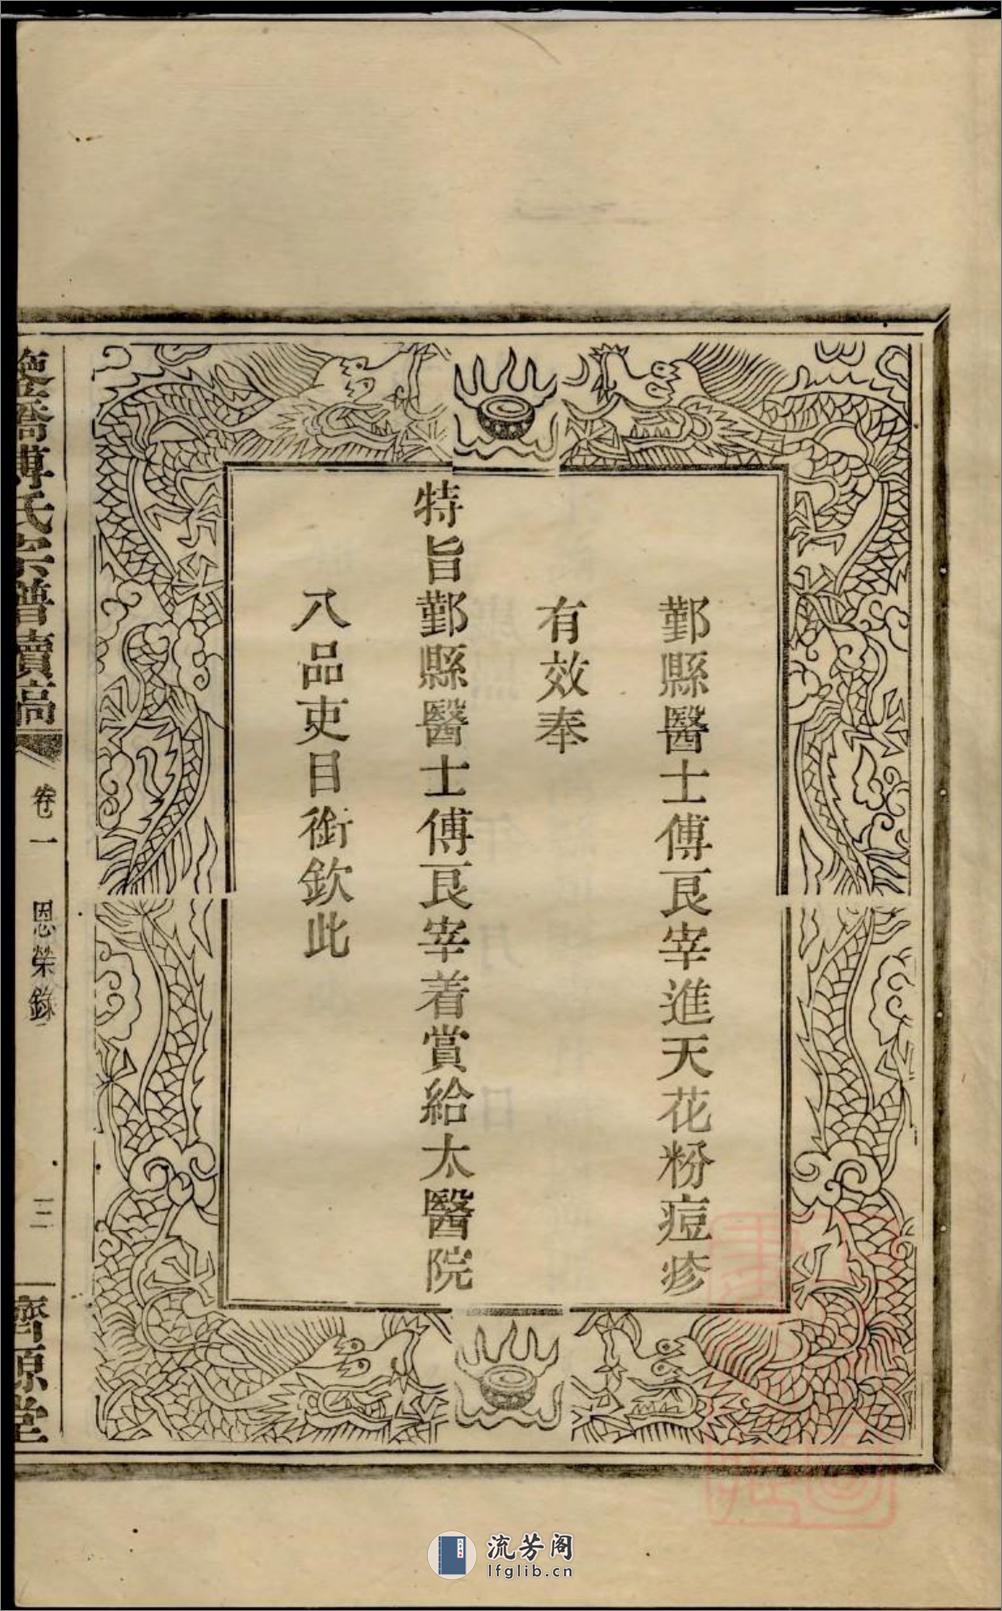 鄞縣醫士傅艮宰進天花粉痘疹
有效奉
特旨鄞縣醫士傅艮宰着賞給太醫院
八品吏目銜欽此
橋傅氏宗譜續稿
卷一 恩榮錄
三
源堂
流芳阁
lfglib.cn